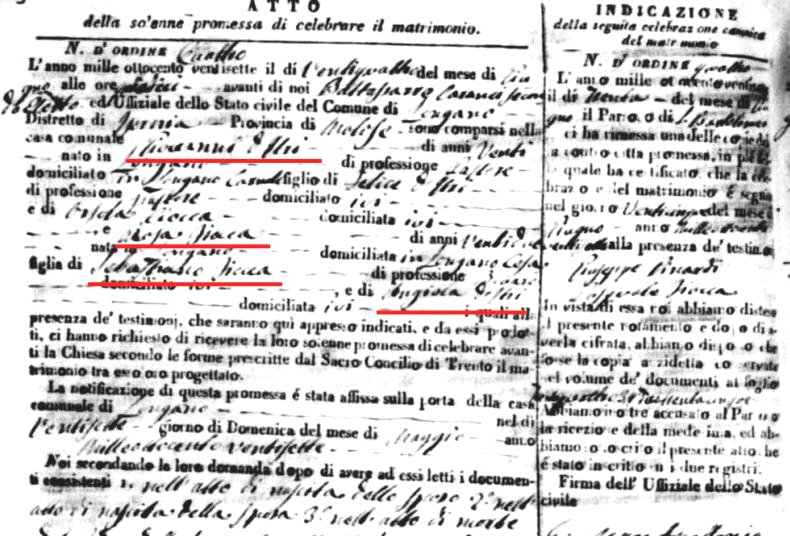 ATTO
della solenne promessa di celebrare il matrimonio.
N. D'ORDINE Quattro
L'anno mille ottocento ventisette il di Ventiquattro del mese di Giu
gno alle ore avanti di noi Baldassarro
ed Uffiziale dello Stato civile del Comune di Longano
Distretto di Isernia Provincia di Molise sono comparsi nella
casa comunale Giovanni di anni Venti
nato in Longano di professione Pastore
domiciliato in Longano figlio di Felice
di professione pastore domiciliato ivi
e di Orsola Ciocca domiciliata ivi
e Rosa Siocca di anni Ventidue
nata in Longano domiciliata in Longano Casa
figlia di Sebastiano Siocca di professione
domiciliato ivi e di Angiola
domiciliata ivi i quali alla
presenza de' testimonj, che saranno quì appresso indicati, e da essi prodot-
ti, ci hanno richiesto di ricevere la loro solenne promessa di celebrare avan-
ti la Chiesa secondo le forme prescritte dal Sacro Concilio di Trento il ma-
trimonio tra essoloro progettato.
La notificazione di questa promessa é stata affissa sulla porta della casa
comunale di Longano nel dì
Ventisette giorno di Domenica del mese di Maggio anno
Milleottocento ventisette
Noi secondando la loro domanda dopo di avere ad essi letti i documen-
ti consistenti 1° nell'atto di nascita dello sposo 2° nell'
atto di nascita della sposa 3° nell'atto di morte
INDICAZIONE
della seguita celebrazione canonica
del matrimonio
N. D'ORDINE quattro
L'anno mille ottocento ventise
il di Trenta del mese di Giu
gno il Parroco di S. Bartolomeo
ci ha rimessa una delle copie della
contro scritta promessa, in piè del-
la quale ha certificato, che la cele-
brazione del matrimonio è seguita
nel giorno del mese di
Giugno anno
alla presenza de' testimonj
Giuseppe
Pasquale Siocca
In vista di essa noi abbiamo disteso
il presente notamento e dopo di a-
verla cifrata, abbiamo disposto che
fosse la copia anzidetta conservata
nel volume de' documenti al foglio
Abbiamo inoltre accusato al Parroco
la ricezione della medesima, ed ab-
biamo sottoscritto il presente atto, che
é stato inscritto su i due registri.
Firma dell' Uffiziale dello Stato
civile